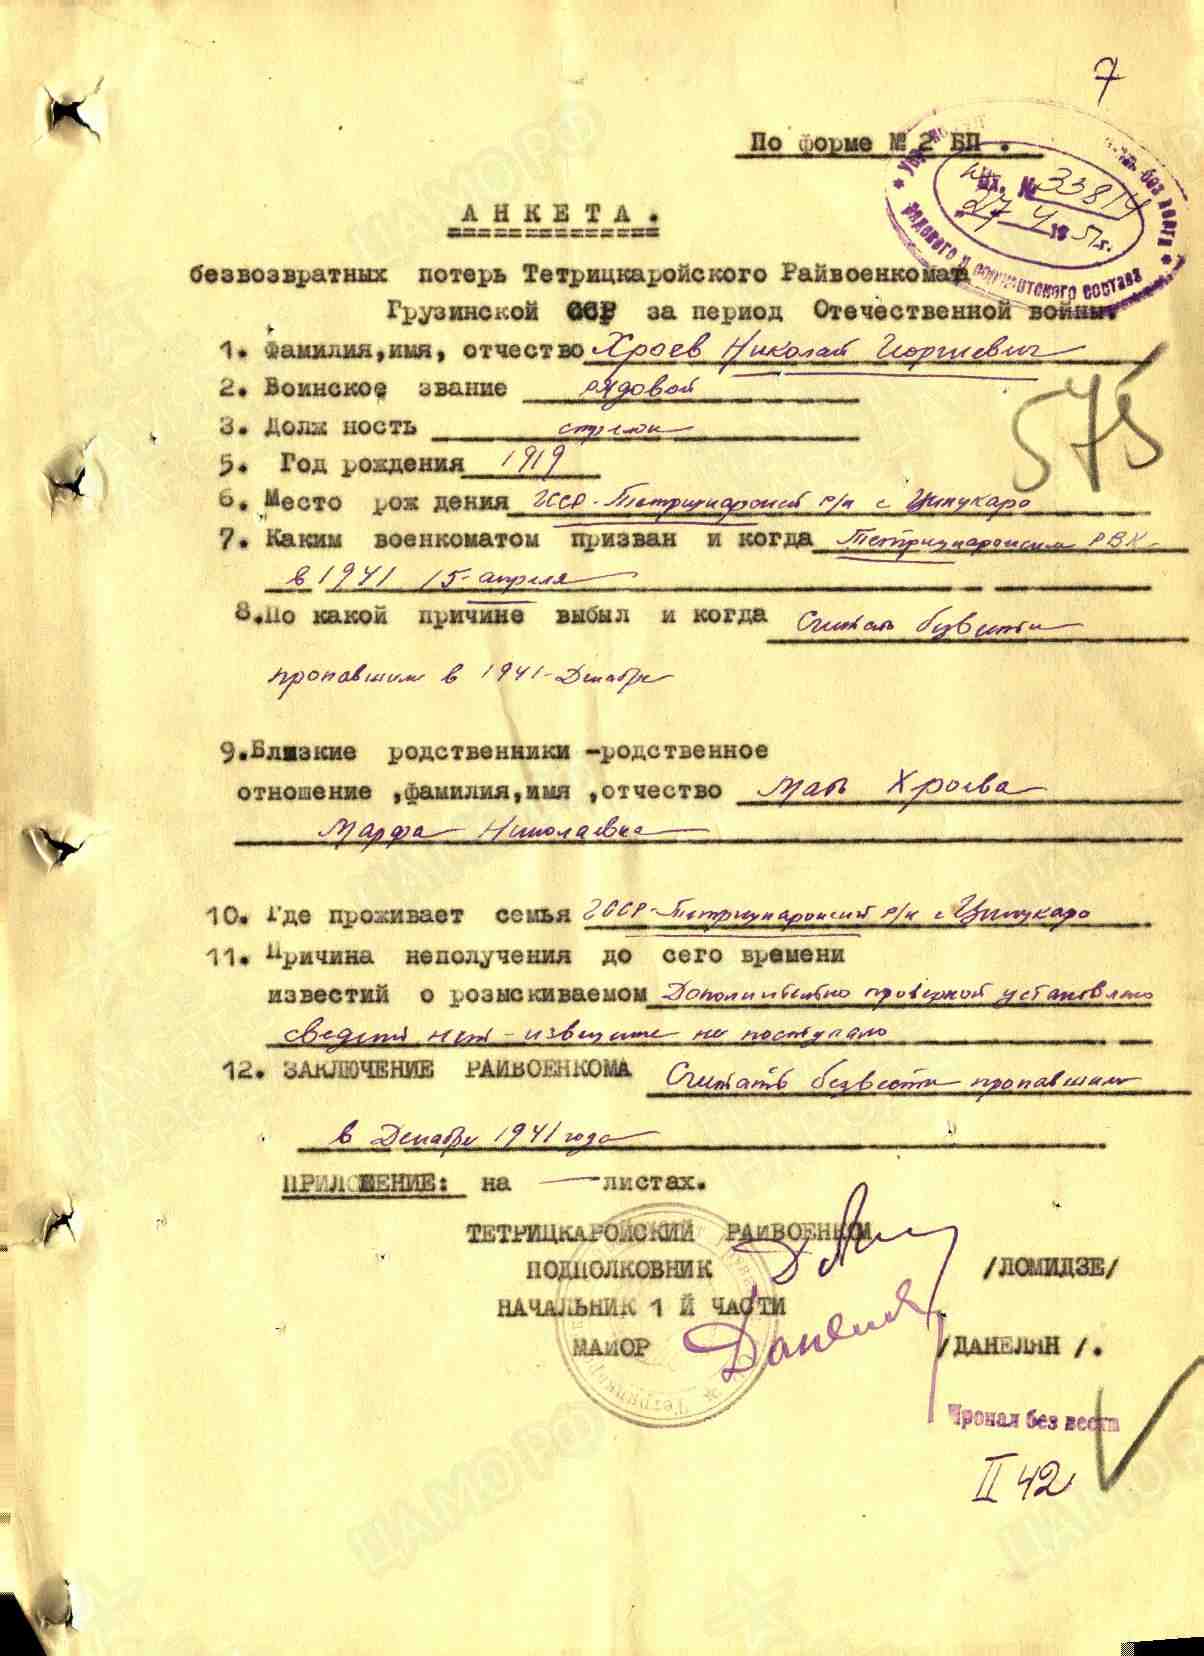 7
По форме № 2 БП .
вх. № 33814
27 4 1951г.
рядового и сержантского состава
АНКЕТА .
безвозвратных потерь Тетрицкаройского Райвоенкомата
Грузинской ССР за период Отечественной войны.
1. Фамилия,имя, отчество Хроев Николай Георгиевич
575
2. Воинское звание рядовой
3. Долж ность стрелок
5. Год рождения 1919
6. Место рож дения ГССР-Тетрицкаройский р/н с Ципукаро
7. Каким военкоматом призван и когда Тетрицкаройским РВК
в 1941 15-апреля
8.По какой причине выбыл и когда Считать безвести
пропавшим в 1941-Декабре
9.Близкие родственники -родственное
отношение ,фамилия,имя ,отчество Мать Хроева
Марфа Николаевна
10. Где проживает семья ГССР-Тетрицкаройский р/н с Ципукаро
11. Причина неполучения до сего времени
известий о розыскиваемом Дополнительно проверкой установлено
сведений нет - извещение не поступало
12. ЗАКЛЮЧЕНИЕ РАЙВОЕНКОМА Считать безвести пропавшим
в Декабре 1941 года
ПРИЛОЖЕНИЕ: на — листах.
ТЕТРИЦКАРОЙСКИЙ РАЙВОЕНКОМ
ПОДПОЛКОВНИК /ЛОМИДЗЕ/
НАЧАЛЬНИК 1 Й ЧАСТИ
МАЙОР /ДАНЕЛЯН /.
Пропал без вести
II 42